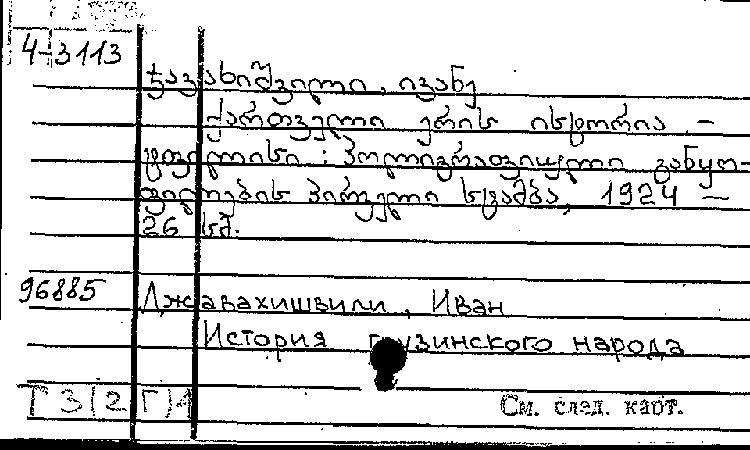 4-3113
ჯავახიშვილი, ივანე
ქართველი ერის ისტორია. —
ტფილისი : პოლიგრაფიული განყო-
ფილების პირველი სტამბა, 1924 —
26 სმ.
96885 Джавахишвили, Иван
История грузинского народа
Г3(2Г)1 См. след. карт.